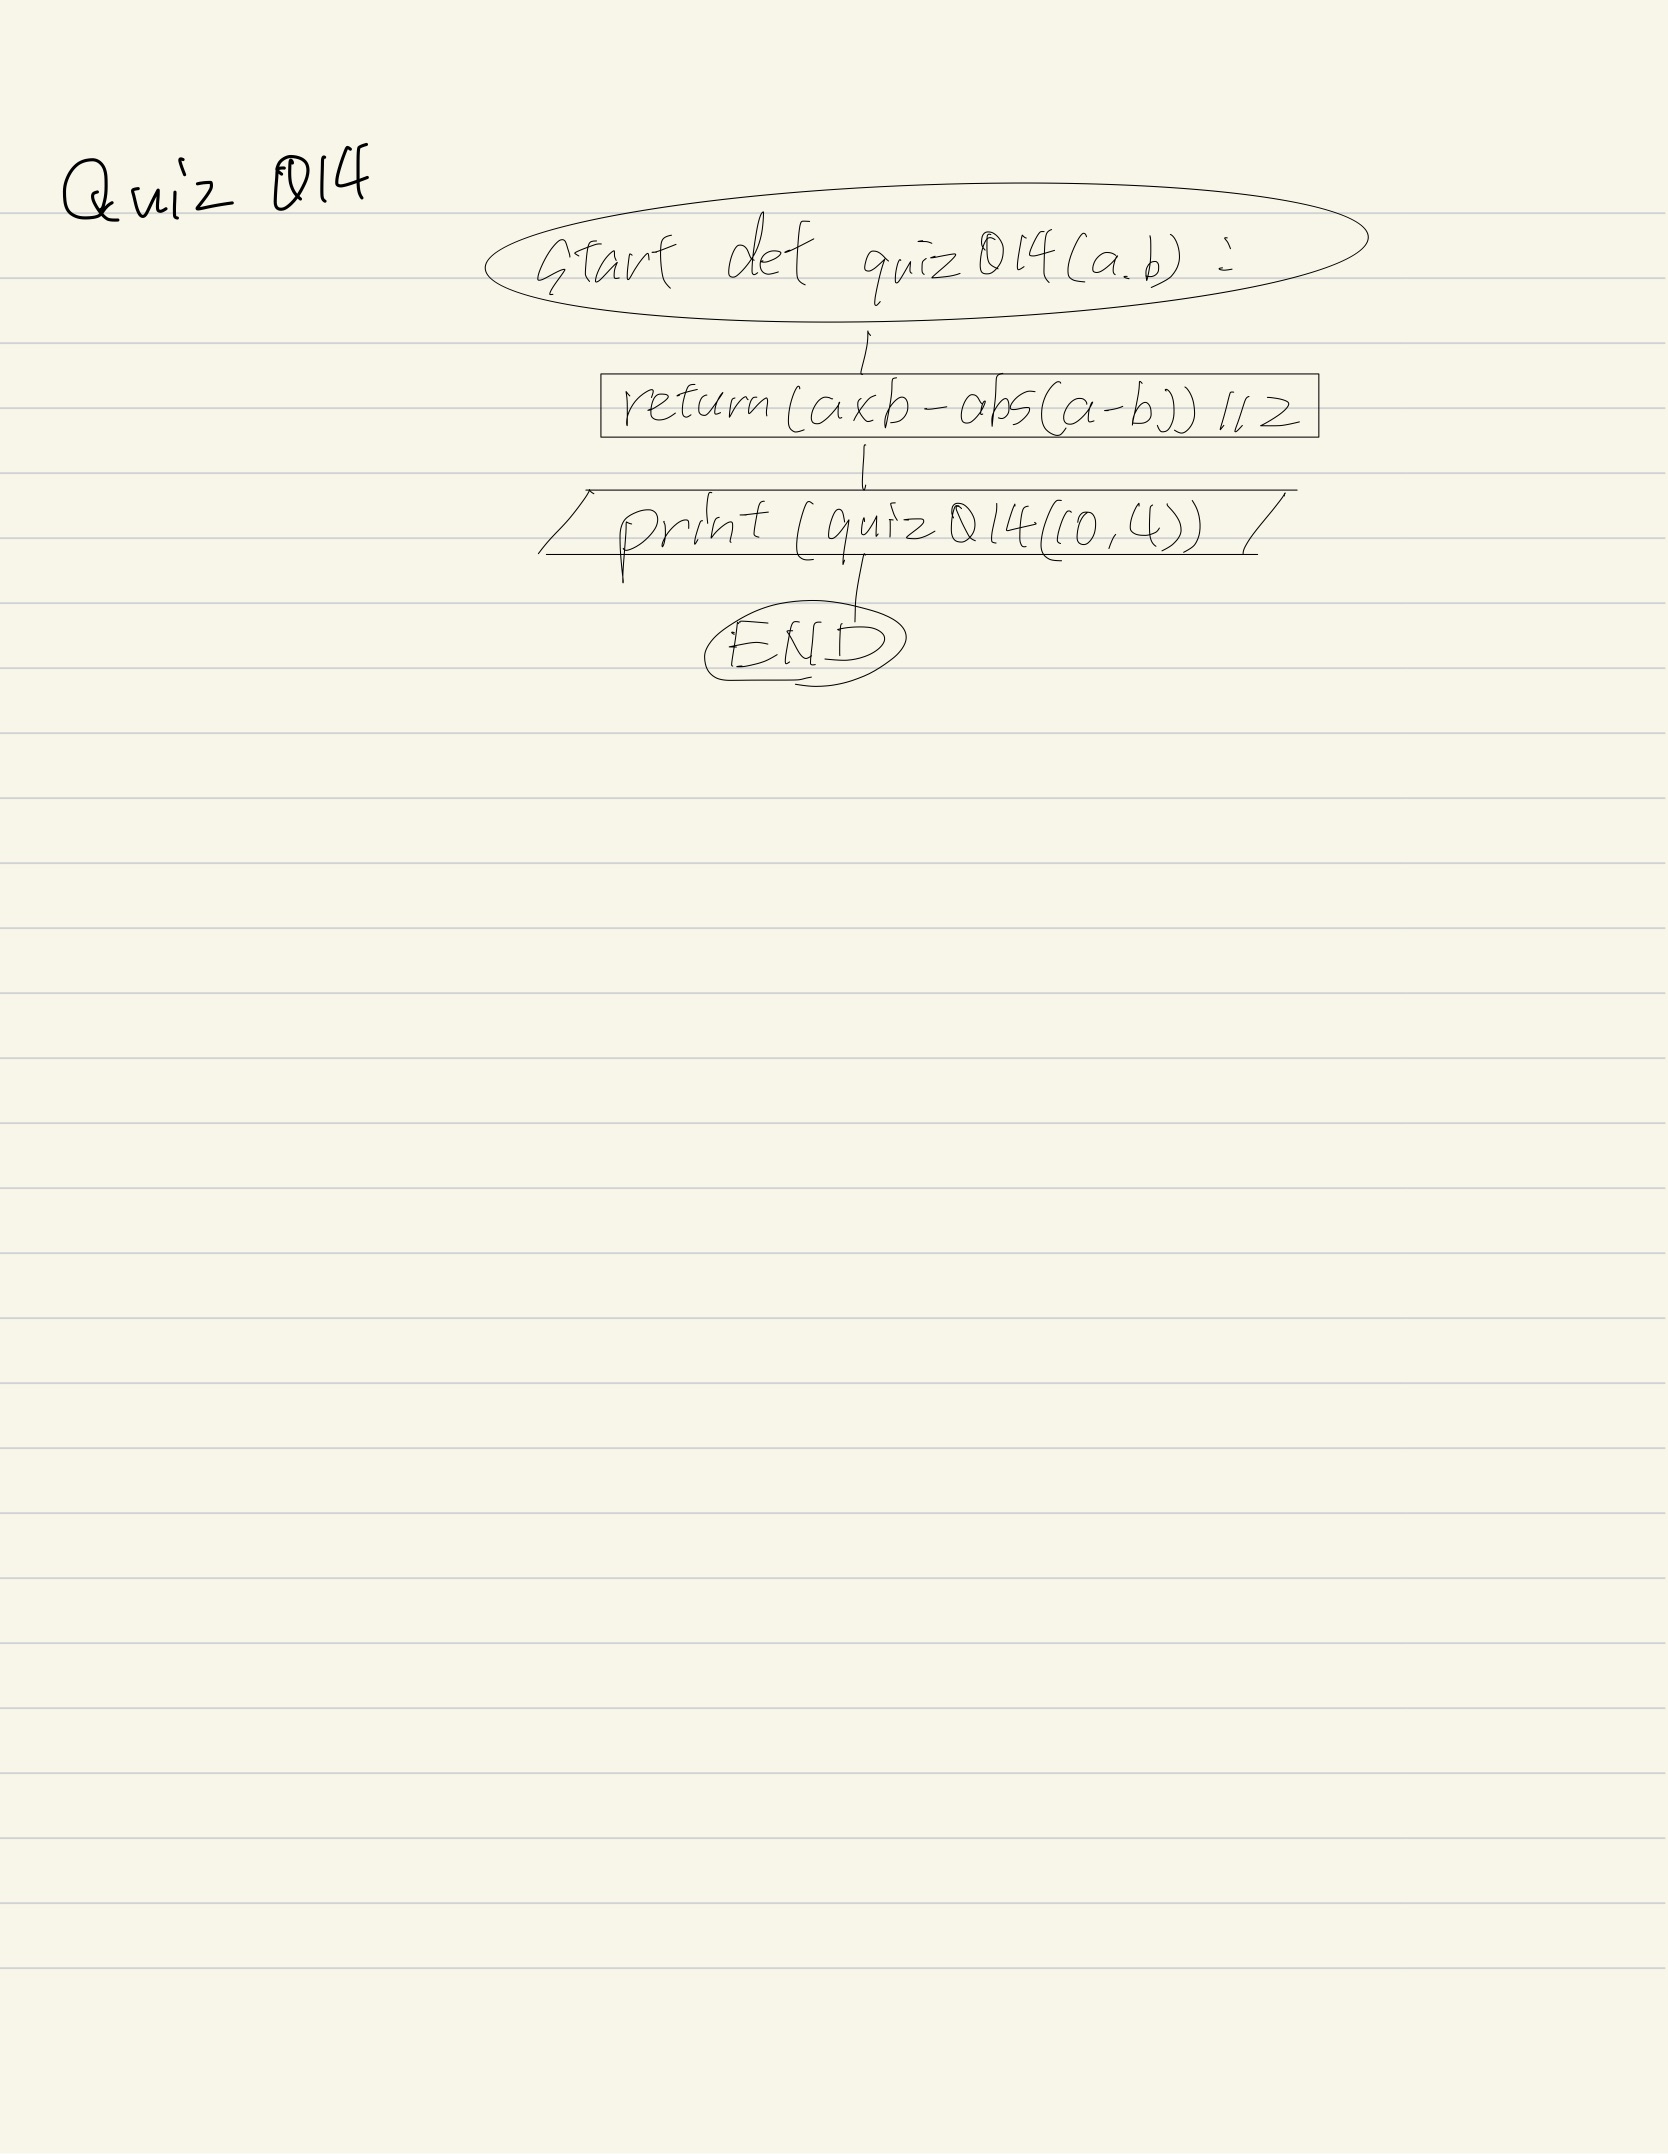 Quiz 014
Start def quiz014(a.b) :
return (axb-abs(a-b)) // 2
print (quiz014(10,4))
END